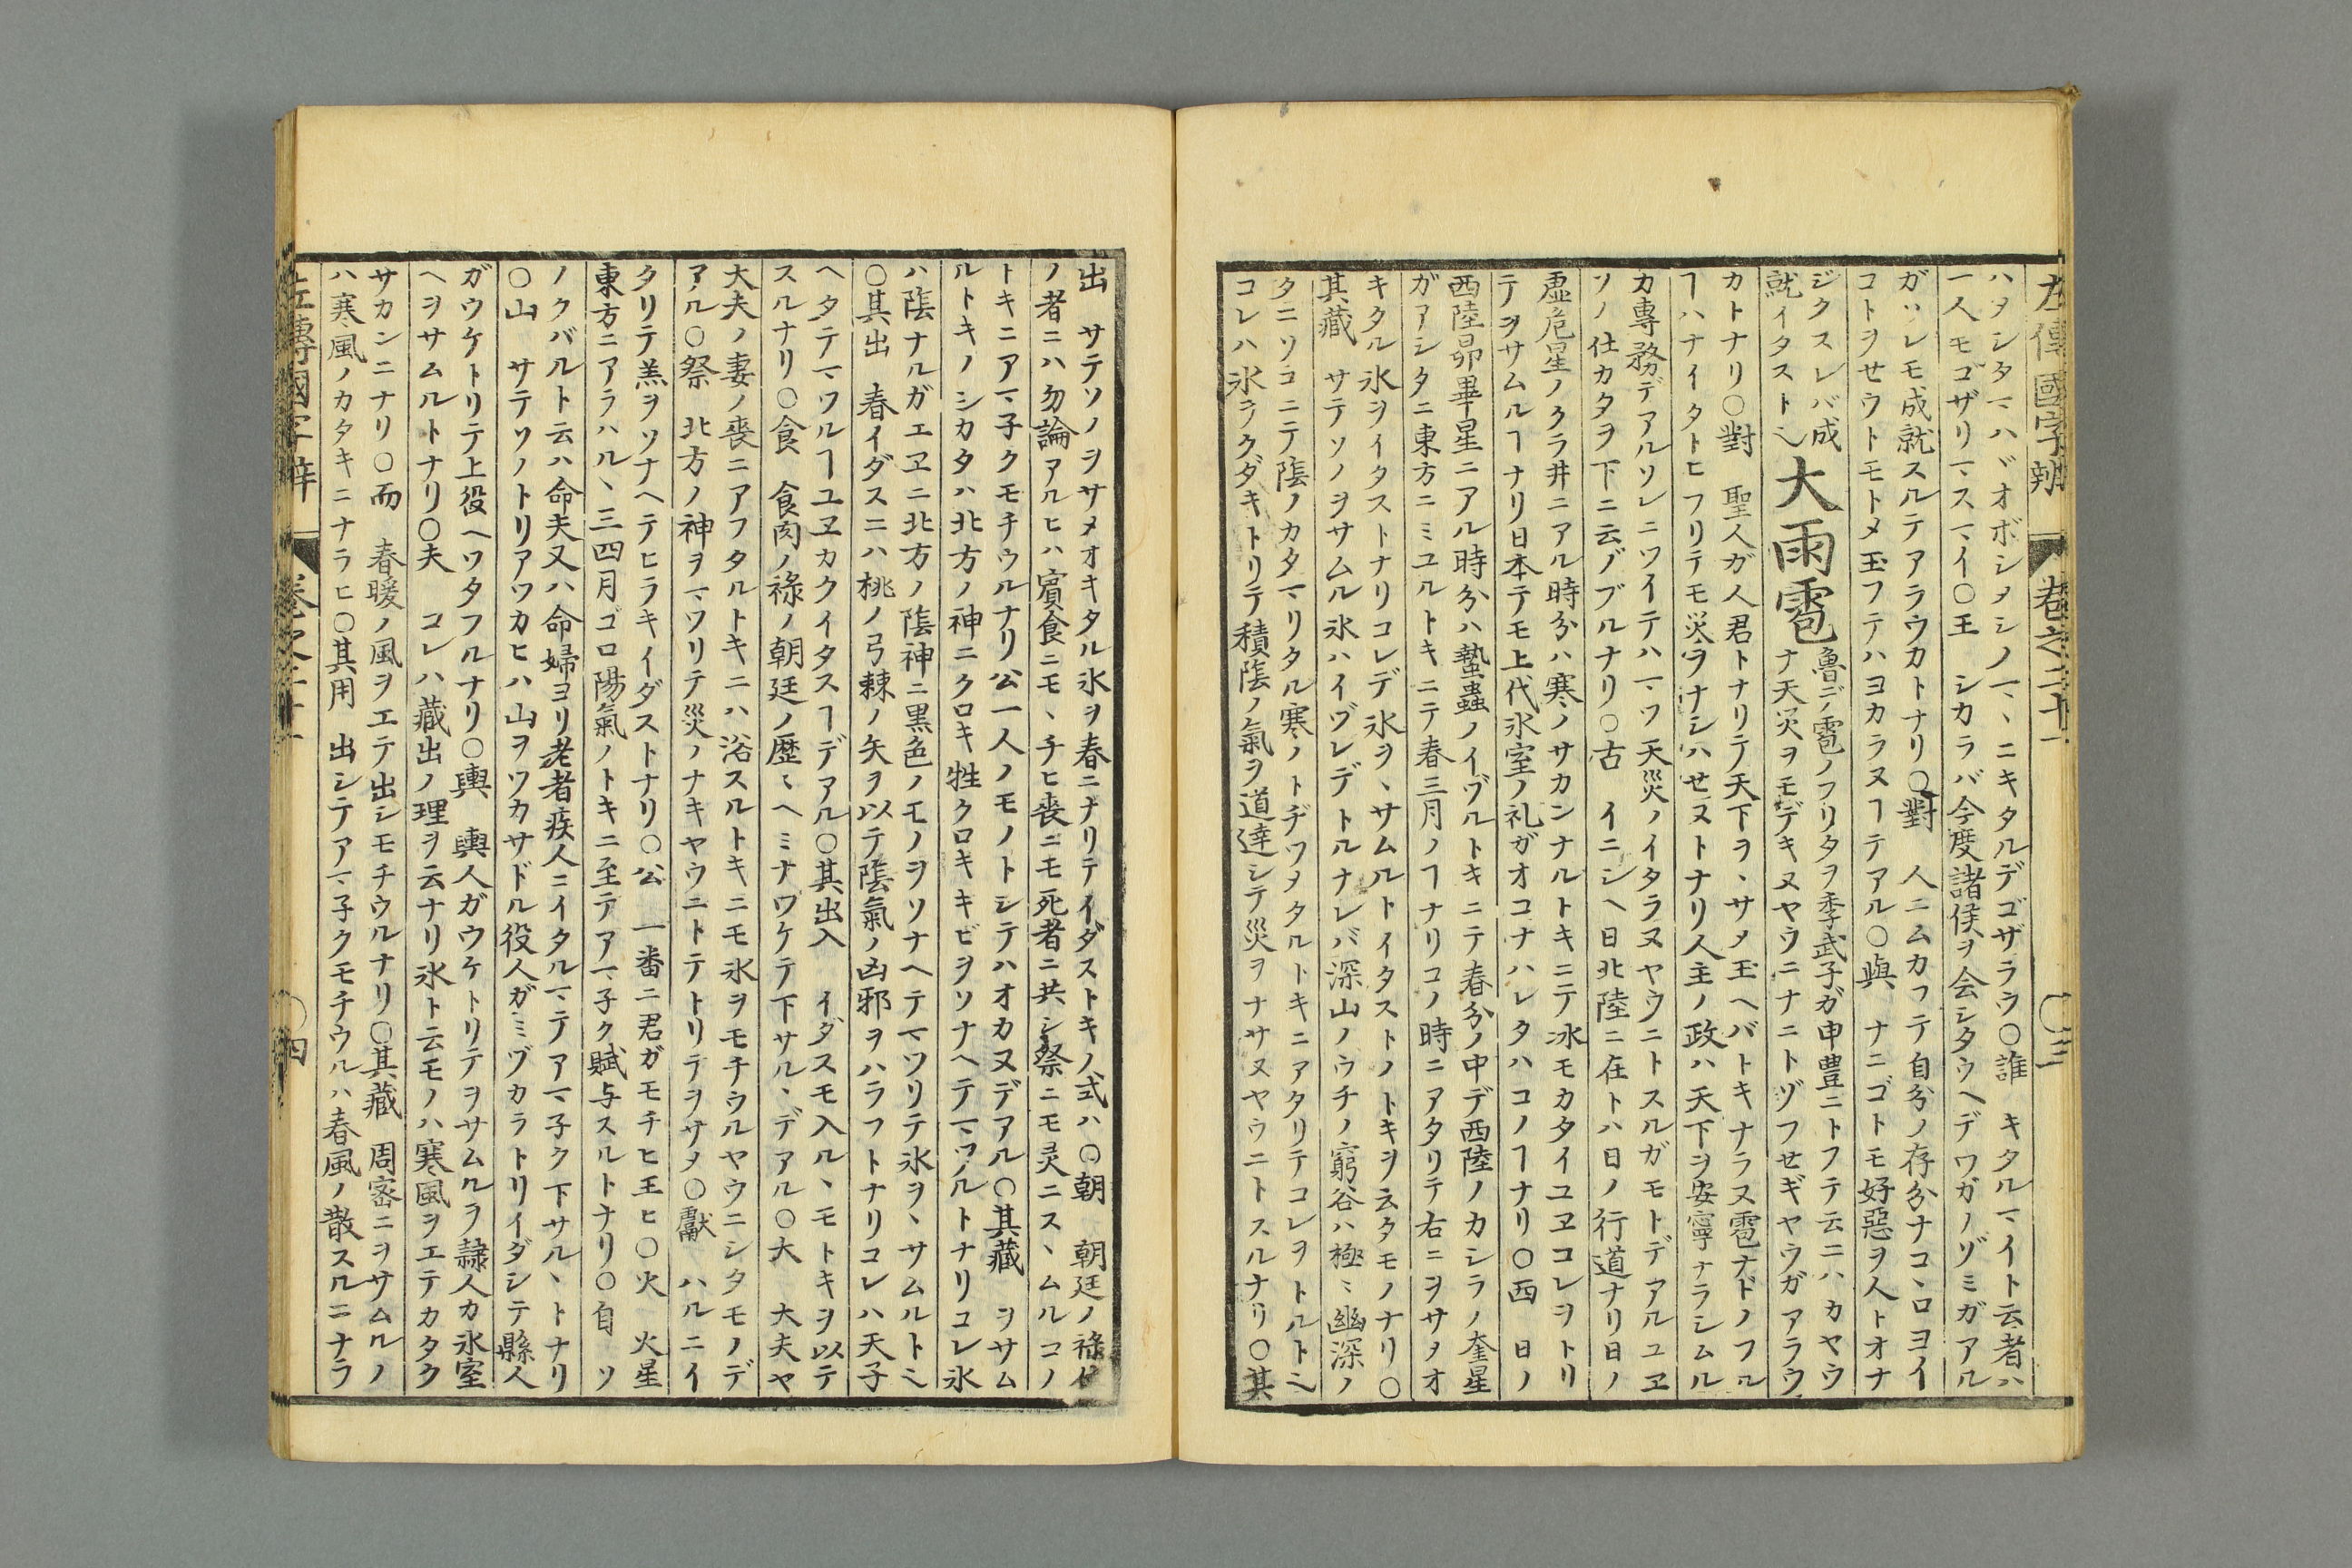 左傳國字辨 卷之二十一 〇三
ハヲシタマハヾオボシメシノマヽニキタルデゴザラウ〇誰 キタルマイト云者ハ
一人モゴザリマスマイ〇王 シカラバ今度諸侯ヲ会シタウヘデワガノゾミガアル
ガソレモ成就スルテアラウカトナリ〇對 人ニムカフテ自分ノ存分ナコヽロヨイ
コトヲせウトモトメ玉フテハヨカラヌヿテアル〇與 ナニゴトモ好惡ヲ人トオナ
ジクスレバ成
就イタストし
大雨雹
魯デ雹ノフリタヲ季武子ガ申豊ニトフテ云ニハカヤウ
ナ天災ヲモデキヌヤウニナニトゾフせギヤウガアラウ
カトナリ〇對 聖人ガ人君トナリテ天下ヲヽサメ玉ヘバトキナラヌ雹ナドノフル
ヿハナイタトヒフリテモ災ヲナシハせヌトナリ人主ノ政ハ天下ヲ安寧ナラシムル
カ専務デアルソレニツイテハマツ天災ノイタラヌヤウニトスルガモトデアルユヱ
ソノ仕カタヲ下ニ云ノブルナリ〇古 イニシヘ日北陸ニ在トハ日ノ行道ナリ日ノ
虚危星ノクラ井ニアル時分ハ寒ノサカンナルトキニテ冰モカタイユヱコレヲトリ
テヲサムルヿナリ日本テモ上代氷室ノ礼ガオコナハレタハコノヿナリ〇西 日ノ
西陸昴畢星ニアル時分ハ蟄蟲ノイヅルトキニテ春分ノ中デ西陸ノカシラノ奎星
ガアシタニ東方ニミユルトキニテ春三月ノヿナリコノ時ニアタリテ右ニヲサメオ
キタル氷ヲイタストナリコレデ氷ヲヽサムルトイタストノトキヲ云タモノナリ〇
其藏 サテソノヲサムル氷ハイヅレデトルナレバ深山ノウチノ窮谷ハ極ミ幽深ノ
タニソコニテ陰ノカタマリタル寒ノトヂツメタルトキニアタリテコレヲトルトし
コレハ氷ヲクダキトリテ積陰ノ氣ヲ道達シテ災ヲナサヌヤウニトスルナリ〇其
出 サテソノヲサメオキタル氷ヲ春ニナリテイダストキノ式ハ〇朝 朝廷ノ祿位
ノ者ニハ勿論アルヒハ賓食ニモヽチヒ喪ニモ死者ニ共シ祭ニモ灵ニスヽムルコノ
トキニアマ子クモチウルナリ公一人ノモノトシテハオカヌデアル〇其藏 ヲサム
ルトキノシカタハ北方ノ神ニクロキ牲クロキキビヲソナヘテマツルトナリコレ氷
ハ陰ナルガユヱニ北方ノ陰神ニ黒色ノモノヲソナヘテマツリテ氷ヲヽサムルトし
〇其出 春イダスニハ桃ノ弓棘ノ矢ヲ以テ陰氣ノ凶邪ヲハラフトナリコレハ天子
ヘタテマツルヿユヱカクイタスヿデアル〇其出入 イダスモ入ルヽモトキヲ以テ
スルナリ〇食 食肉ノ祿ノ朝廷ノ歴ミヘミナワケテ下サルヽデアル〇大 大夫ヤ
大夫ノ妻ノ喪ニアフタルトキニハ浴スルトキニモ氷ヲモチウルヤウニシタモノデ
アル〇祭 北方ノ神ヲマツリテ災ノナキヤウニトテトリテヲサメ〇獻 ハルニイ
タリテ羔ヲソナヘテヒラキイダストナリ〇公 一番ニ君ガモチヒ玉ヒ〇火 火星
東方ニアラハルヽ三四月ゴロ陽氣ノトキニ至テアマ子ク賦与スルトナリ〇自 ソ
ノクバルト云ハ命夫又ハ命婦ヨリ老者疾人ニイタルマテアマ子ク下サルヽトナリ
〇山 サテソノトリアツカヒハ山ヲツカサドル役人ガミヅカラトリイダシテ縣人
ガウケトリテ上役ヘワタフルナリ〇輿 輿人ガウケトリテヲサムルラ隷人カ氷室
ヘヲサムルトナリ〇夫 コレハ藏出ノ理ヲ云ナリ氷ト云モノハ寒風ヲエテカタク
サカンニナリ〇而 春暖ノ風ヲエテ出シモチウルナリ〇其藏 周密ニヲサムルノ
ハ寒風ノカタキニナラヒ〇其用 出シテアマ子クモチウルハ春風ノ散スルニナラ
左傳國字辨 卷之二十一 〇四